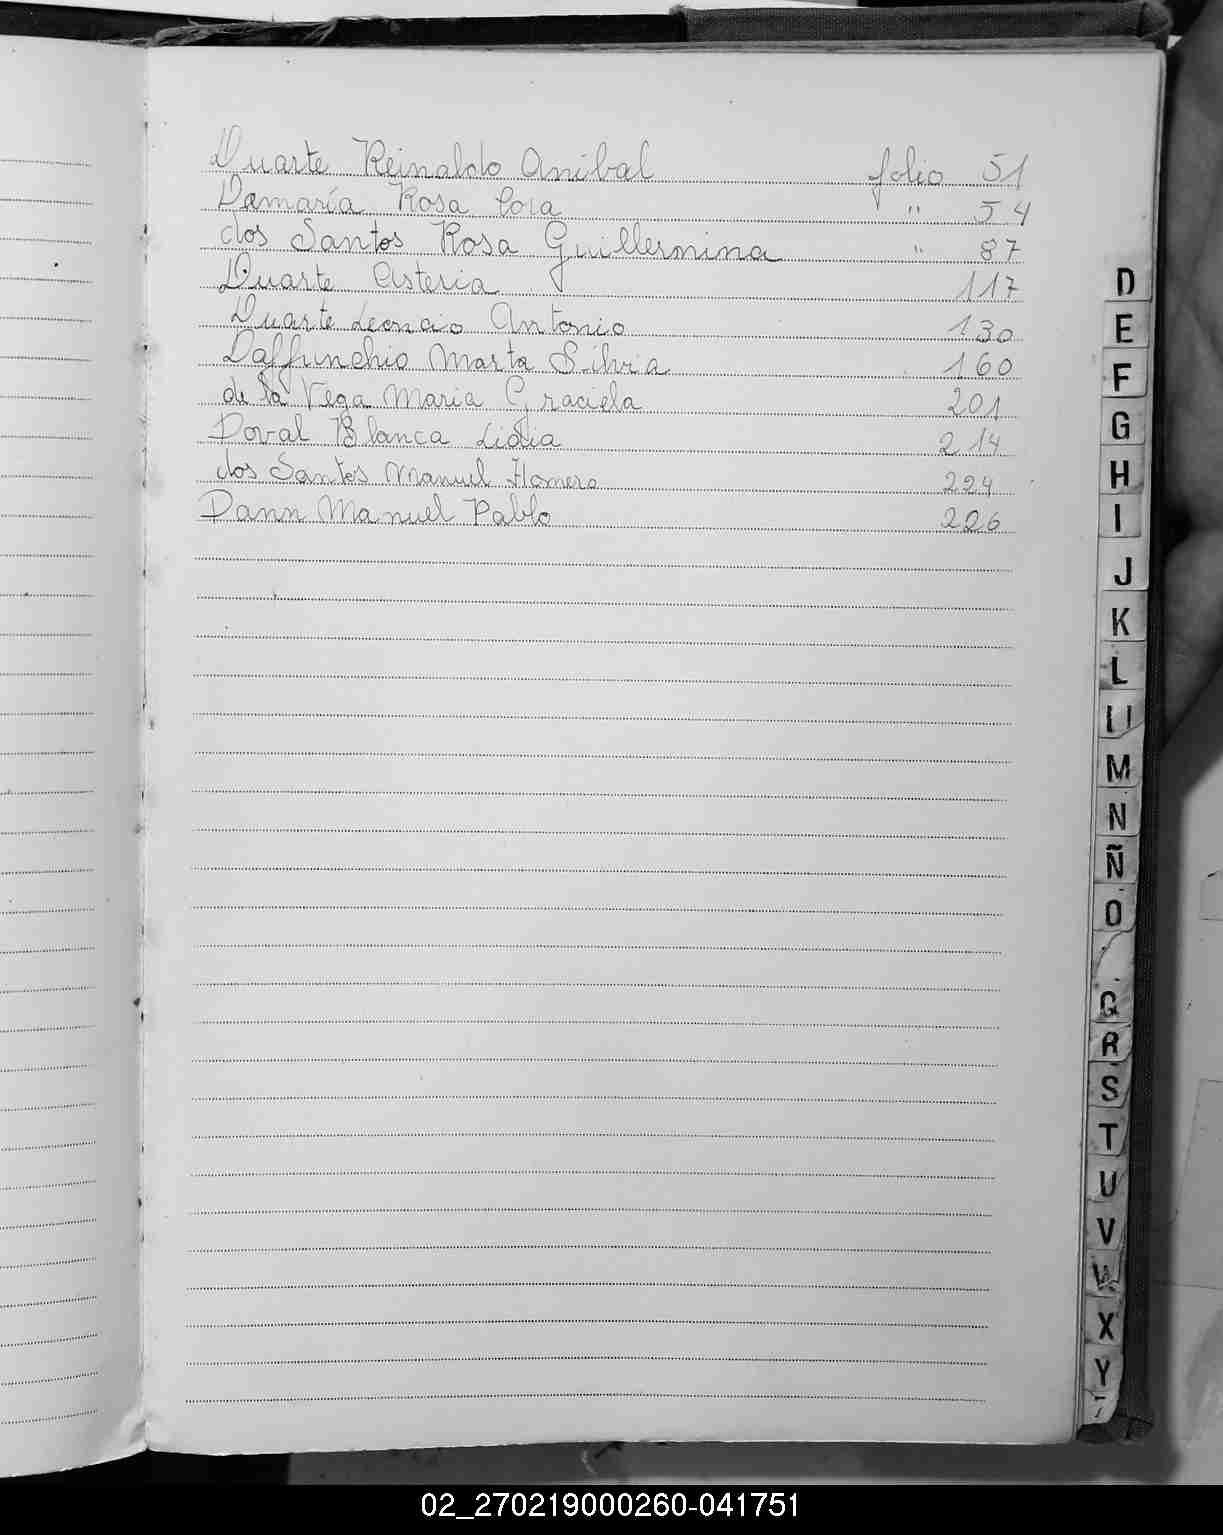 Duarte Reinaldo Aníbal folio 51
Damaría Rosa " 54
dos Santos Rosa Guillermina " 87
Duarte Asteria 117
Duarte Leoncio Antonio 130
Daffunchio Marta Silvia 160
de la Vega Maria Graciela 201
Doval Blanca Lidia 214
dos Santos Manuel Homero 224
Dann Manuel Pablo 226
D
E
F
G
H
I
J
K
L
M
N
Ñ
O
Q
R
S
T
U
V
W
X
Y
02_270219000260-041751